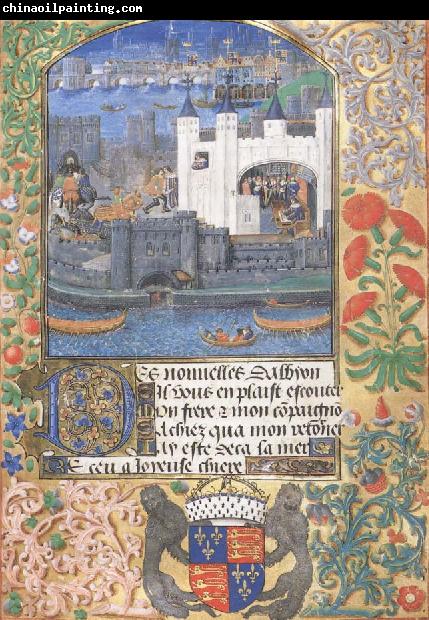 chinaoilpainting.com
Des nouuelles dalbyon
Il vous en plaist escouter
Mon frere & mon compaignõ
Sachez qua mon retoner
Jay este deca la mer
Et receu a Joyeuse chiere